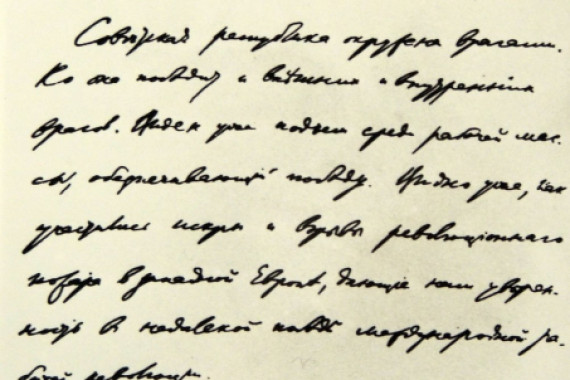 Совѣтская республика окружена врагами.
Но она побѣдит и внѣшних и внутренних
врагов. Виден уже подъем среди рабочей мас-
сы, обезпечивающій побѣду. Видно уже, как
участились искры и взрывы революціоннаго
пожара в западной Европѣ, дающіе нам уверен-
ность в недалекой побѣдѣ международной ра-
бочей революции.